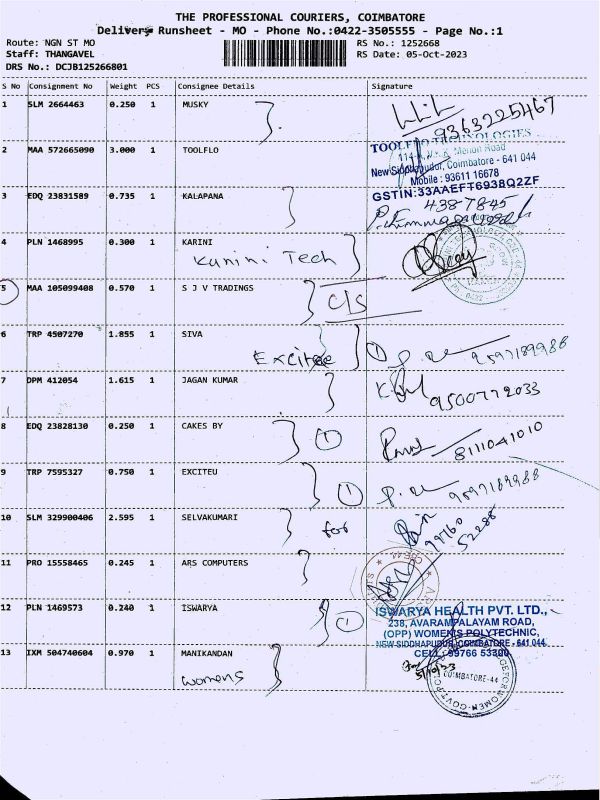 THE PROFESSIONAL COURIERS, COIMBATORE
Delivery Runsheet - MO - Phone No.:0422-3505555 - Page No.:1
Route: NGN ST MO
RS No.: 1252668
Staff: THANGAVEL
RS Date: 05-Oct-2023
DRS No.: DCJB125266801
S No Consignment No Weight PCS Consignee Details Signature
1 SLM 2664463 0.250 1 MUSKY
9363225467
2 MAA 572665090 3.000 1 TOOLFLO
TOOLFLO TECHNOLOGIES
Menon Road
New Siddhapudur, Coimbatore - 641 044
Mobile : 93611 16678
GSTIN:33AAEFT6938Q2ZF
3 EDQ 23831589 0.735 1 KALAPANA
4387845
4 PLN 1468995 0.300 1 KARINI
Kanini Tech
5 MAA 105099408 0.570 1 S J V TRADINGS
C/S
6 TRP 4507270 1.855 1 SIVA
Excitee 1 9597189988
7 DPM 412054 1.615 1 JAGAN KUMAR
9500772033
8 EDQ 23828130 0.250 1 CAKES BY
1 8111041010
9 TRP 7595327 0.750 1 EXCITEU
1 9597189988
10 SLM 329900406 2.595 1 SELVAKUMARI
for 99760 52288
11 PRO 15558465 0.245 1 ARS COMPUTERS
12 PLN 1469573 0.240 1 ISWARYA
1
ISWARYA HEALTH PVT. LTD.,
238, AVARAMPALAYAM ROAD,
(OPP) WOMENS POLYTECHNIC,
NEW SIDDHAPUDUR, COIMBATORE - 641 044.
CELL : 99766 53300
13 IXM 504740604 0.970 1 MANIKANDAN
Womens
5/10/23
COIMBATORE-44